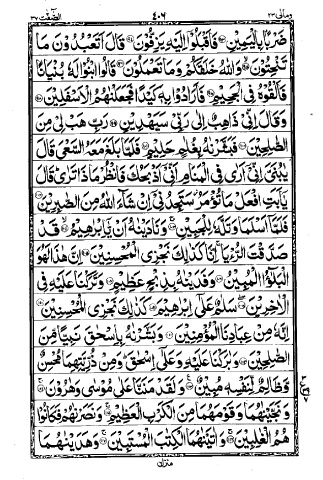 الصّٰٓفّٰت ٣٧ ٤٠٦ ومالى ٢٣
ضَرْبًۢا بِالْيَمِيْنِ فَاَقْبَلُوْٓا اِلَيْهِ يَزِفُّوْنَ قَالَ اَتَعْبُدُوْنَ مَا
تَنْحِتُوْنَ وَاللّٰهُ خَلَقَكُمْ وَمَا تَعْمَلُوْنَ قَالُوا ابْنُوْا لَهٗ بُنْيَانًا
فَاَلْقُوْهُ فِى الْجَحِيْمِ فَاَرَادُوْا بِهٖ كَيْدًا فَجَعَلْنٰهُمُ الْاَسْفَلِيْنَ
وَقَالَ اِنِّىْ ذَاهِبٌ اِلٰى رَبِّىْ سَيَهْدِيْنِ رَبِّ هَبْ لِىْ مِنَ
الصّٰلِحِيْنَ فَبَشَّرْنٰهُ بِغُلٰمٍ حَلِيْمٍ فَلَمَّا بَلَغَ مَعَهُ السَّعْىَ قَالَ
يٰبُنَىَّ اِنِّىْٓ اَرٰى فِى الْمَنَامِ اَنِّىْٓ اَذْبَحُكَ فَانْظُرْ مَاذَا تَرٰى قَالَ
يٰٓاَبَتِ افْعَلْ مَا تُؤْمَرُ سَتَجِدُنِىْٓ اِنْ شَآءَ اللّٰهُ مِنَ الصّٰبِرِيْنَ
فَلَمَّآ اَسْلَمَا وَتَلَّهٗ لِلْجَبِيْنِ وَنَادَيْنٰهُ اَنْ يّٰٓاِبْرٰهِيْمُ قَدْ
صَدَّقْتَ الرُّءْيَا اِنَّا كَذٰلِكَ نَجْزِى الْمُحْسِنِيْنَ اِنَّ هٰذَا لَهُوَ
الْبَلٰٓؤُا الْمُبِيْنُ وَفَدَيْنٰهُ بِذِبْحٍ عَظِيْمٍ وَتَرَكْنَا عَلَيْهِ فِى
الْاٰخِرِيْنَ سَلٰمٌ عَلٰٓى اِبْرٰهِيْمَ كَذٰلِكَ نَجْزِى الْمُحْسِنِيْنَ
اِنَّهٗ مِنْ عِبَادِنَا الْمُؤْمِنِيْنَ وَبَشَّرْنٰهُ بِاِسْحٰقَ نَبِيًّا مِّنَ
الصّٰلِحِيْنَ وَبٰرَكْنَا عَلَيْهِ وَعَلٰٓى اِسْحٰقَ وَمِنْ ذُرِّيَّتِهِمَا مُحْسِنٌ
وَّظَالِمٌ لِّنَفْسِهٖ مُبِيْنٌ وَلَقَدْ مَنَنَّا عَلٰى مُوْسٰى وَهٰرُوْنَ
وَنَجَّيْنٰهُمَا وَقَوْمَهُمَا مِنَ الْكَرْبِ الْعَظِيْمِ وَنَصَرْنٰهُمْ فَكَانُوْا
هُمُ الْغٰلِبِيْنَ وَاٰتَيْنٰهُمَا الْكِتٰبَ الْمُسْتَبِيْنَ وَهَدَيْنٰهُمَا